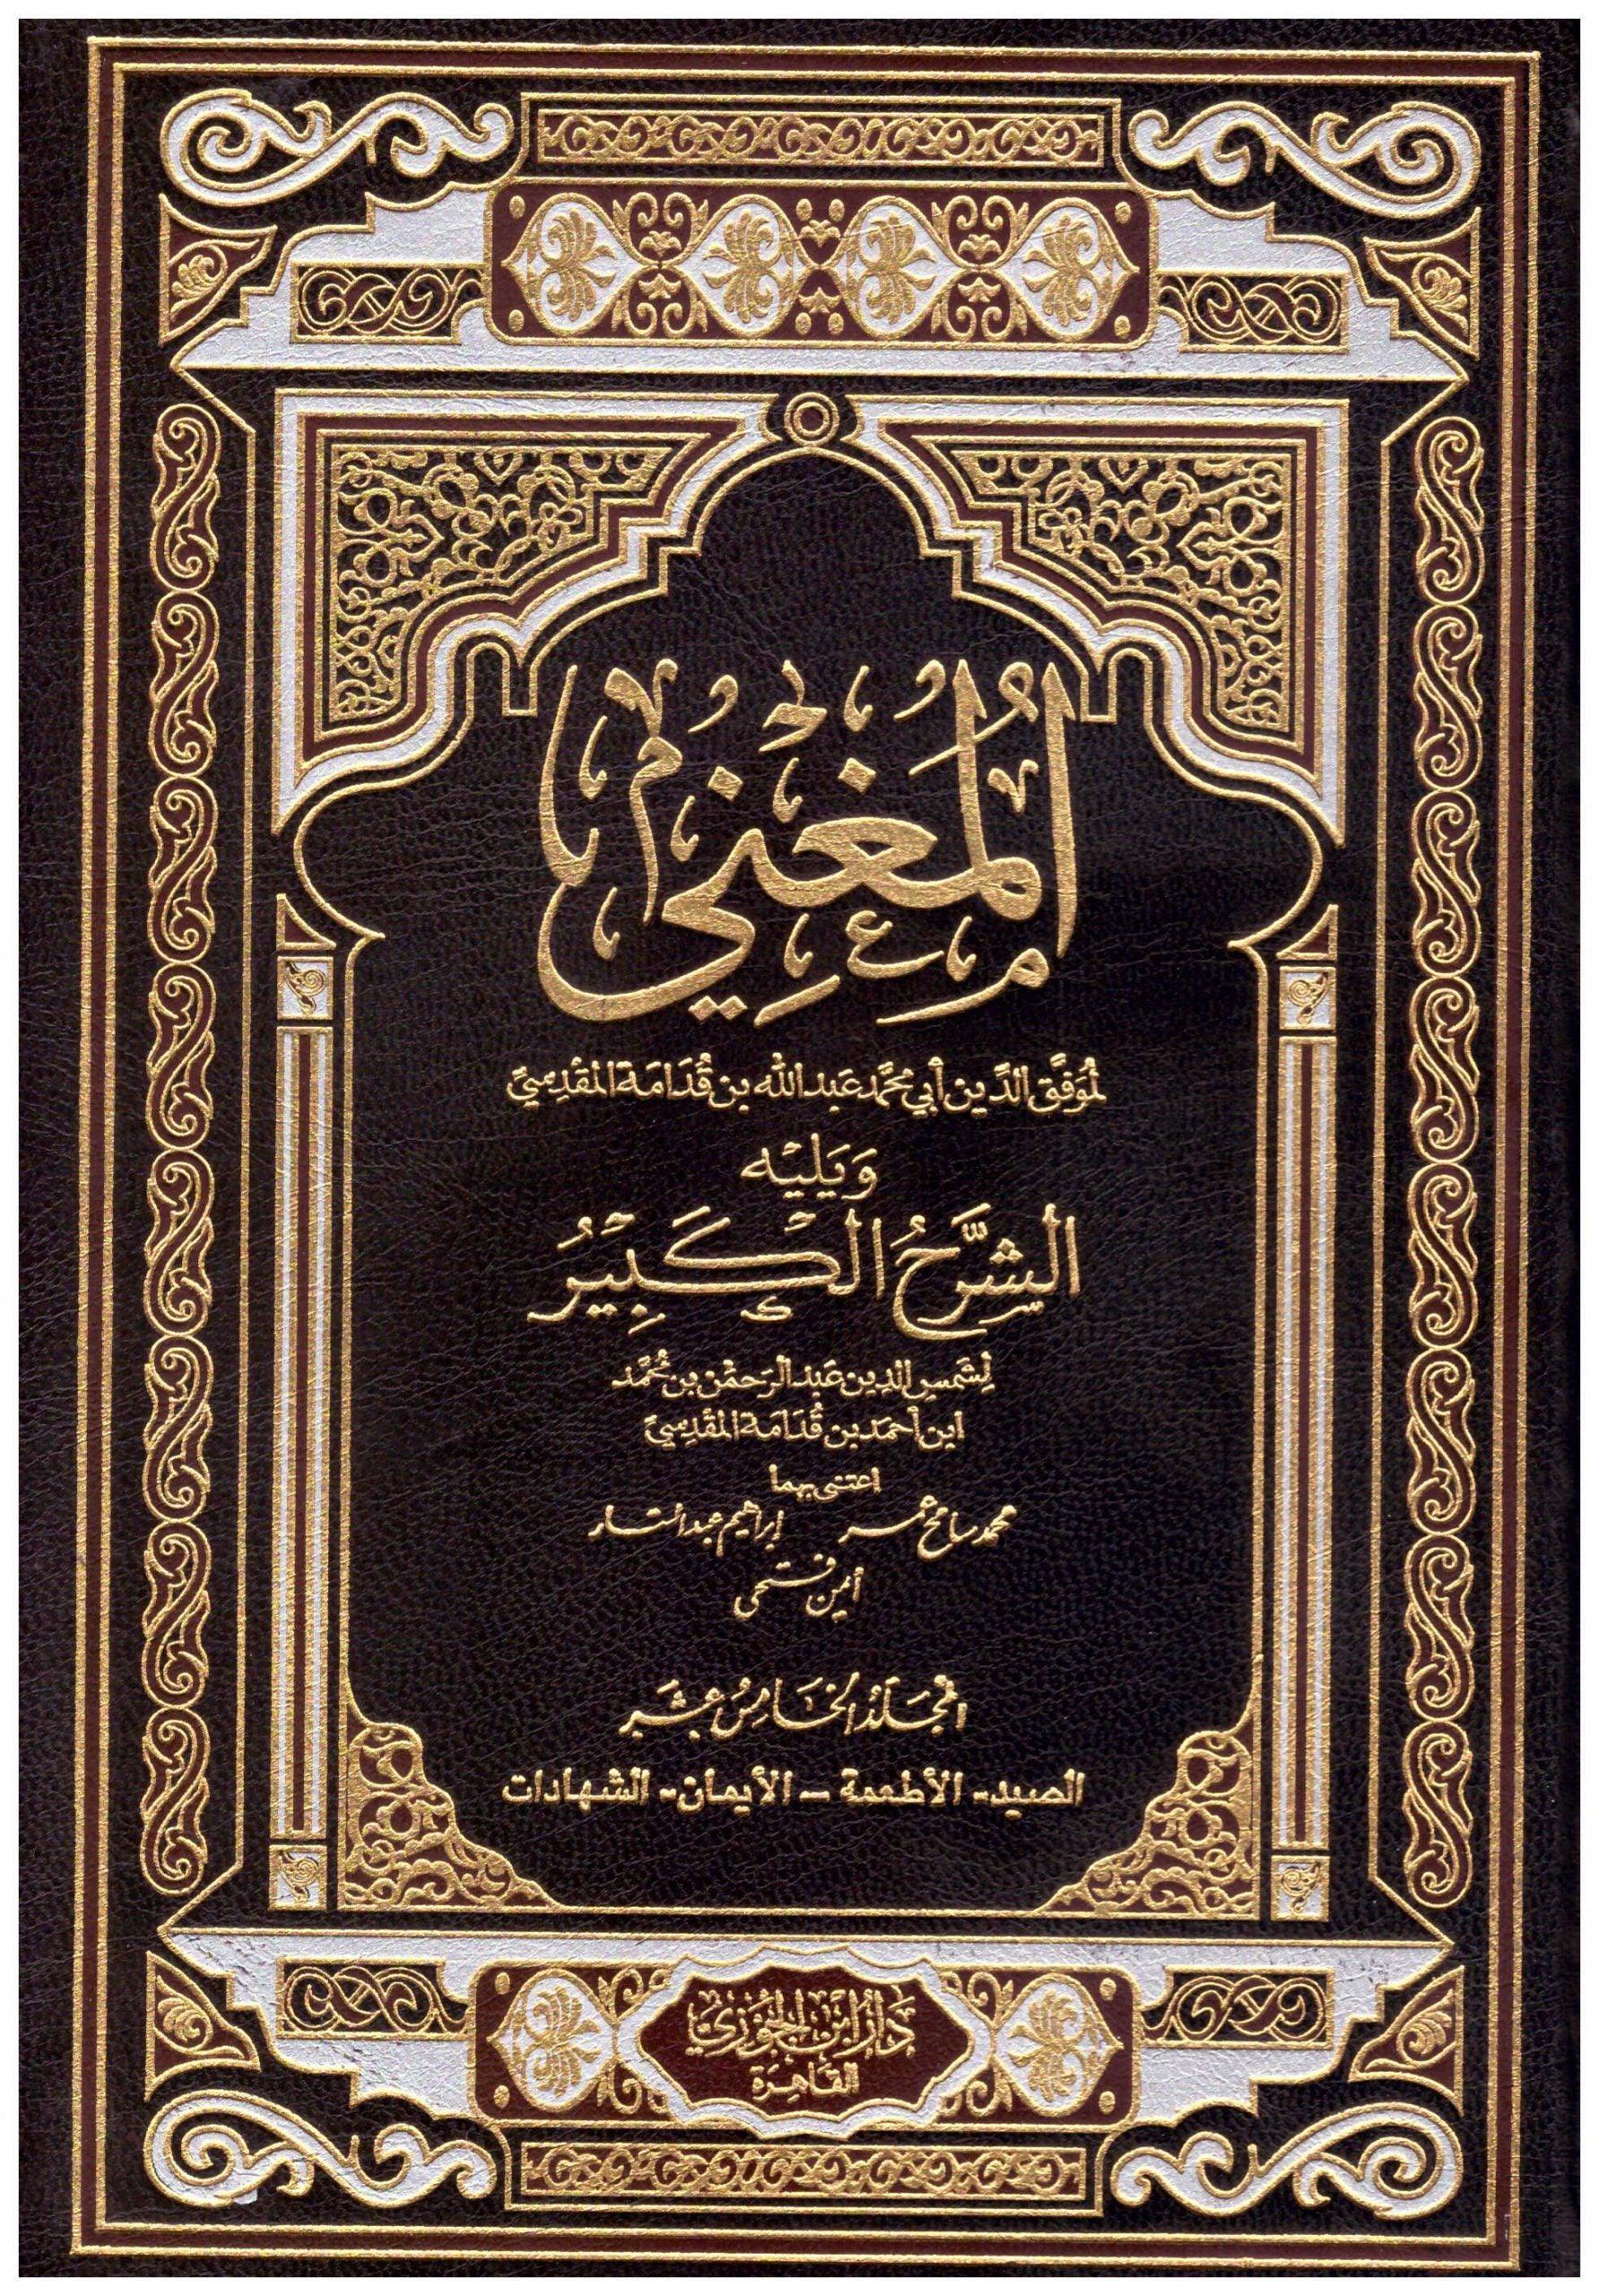 المُغنِي
لموَفَّق الدِّين أبي محمَّد عَبد الله بن قُدَامَة المقدِسيّ
وَيَليْه
الشَّرْحُ الكَبِيْرُ
لِشَمسِ الدِين عَبد الرَحمٰن بن محُمَّد
ابن أحمَد بن قُدَامَة المقَدِسيّ
اعتنى بهما
محمد سامح عمر إبراهيم عبد الستار
أيمن فتحى
المجَلدُ الخَامِسُ عشَر
الصيد - الأطعمة - الأيمان - الشهادات
دَارُ ابْن الجَوْزِيّ
القَاهِرَة